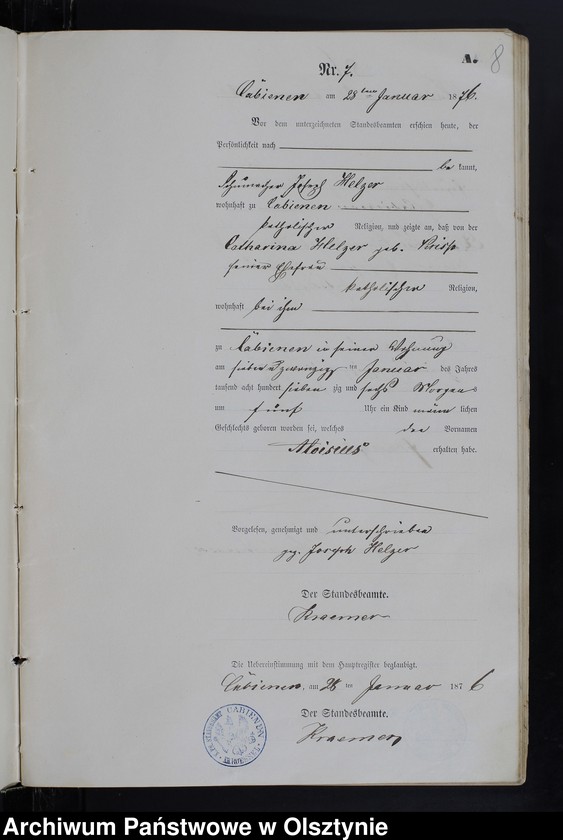 A. 8
Nr. 7.
Cabienen am 28ten Januar 1876.
Vor dem unterzeichneten Standesbeamten erschien heute, der
Persönlichkeit nach
be kannt,
Schumacher Joseph Helzer
wohnhaft zu Cabienen
katholischer Religion, und zeigte an, daß von der
Catharina Helzer geb.
seiner Ehefrau
katholischer Religion,
wohnhaft bei ihm
zu Cabienen in seiner Wohnung
am sieben u zwanzig ten Januar des Jahres
tausend acht hundert sieben zig und sechs Morgens
um fünf Uhr ein Kind männ lichen
Geschlechts geboren worden sei, welches den Vornamen
Aloisius erhalten habe.
Vorgelesen, genehmigt und unterschrieben
gez. Joseph Helzer
Der Standesbeamte.
Kraemer
Die Uebereinstimmung mit dem Hauptregister beglaubigt.
Cabienen, am 28 ten Januar 1876
Der Standesbeamte.
Kraemer
CABIENEN
Archiwum Państwowe w Olsztynie